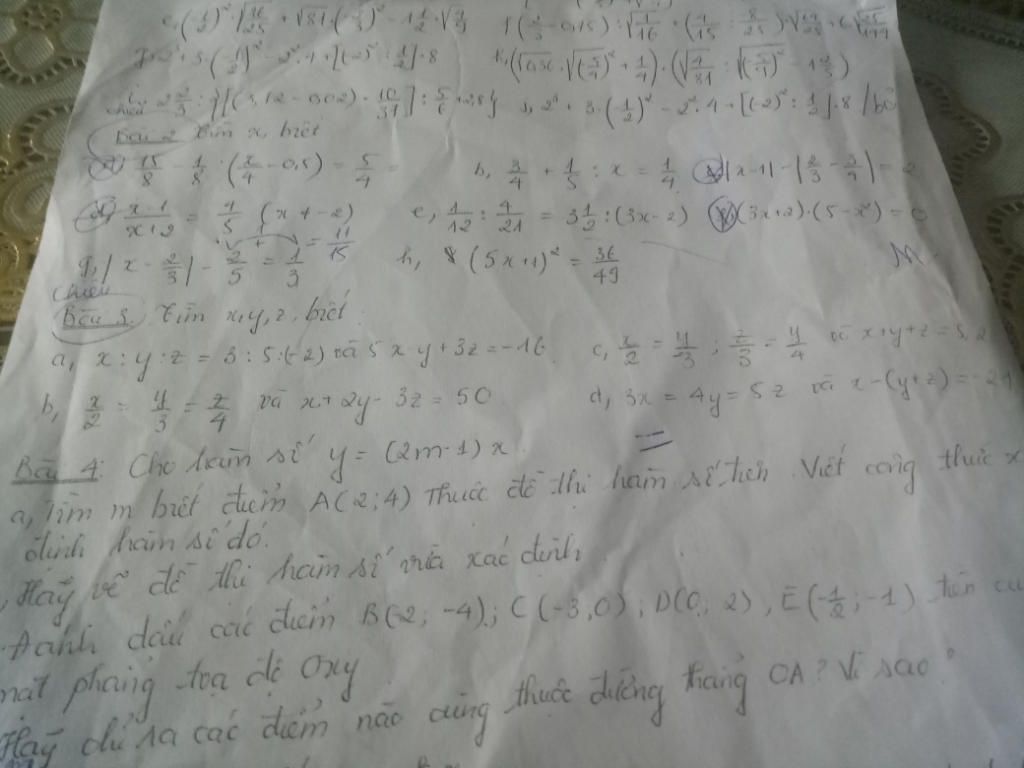 c, (1/2)² · √(16/25) + √81 · (-1/3)² - 1 1/2 · √(4/9)
+ 3 · (1/2)² - 2² · 4 + [(-2)² : 1/2] · 8
chiều
j, 2³ + 3 · (1/2)² - 2² · 4 + [(-2)² : 1/2] · 8 / bỏ
Bài 2 Tìm x biết
15/8 - 1/8 · (x/4 - 0,5) = 5/4 b, 3/4 + 1/5 : x = 1/4 |x-1| - |2/3 - 3/4| = 2
d, x-1/x+2 = 4/5 (x ≠ -2) e, 1/12 : 4/21 = 3 1/2 : (3x-2) (3x+2) · (5-x²) = 0
= 11/15
g, |x - 2/3| - 2/5 = 1/3 h, (5x+1)² = 36/49
chiều
Bài 3. Tìm x,y,z biết
a, x : y : z = 3 : 5 : (-2) và 5x-y+3z = -16 c, x/2 = y/3 ; z/3 = y/4 và x+y+z =
b, x/2 = y/3 = z/4 và x+2y-3z = 50 d, 3x = 4y = 5z và x-(y+z) = -21
Bài 4: Cho hàm số y = (2m-1)x
a, Tìm m biết điểm A(2;4) Thuộc đồ thị hàm số trên. Viết công thức x
định hàm số đó.
, Hãy vẽ đồ thị hàm số vừa xác định
. Đánh dấu các điểm B(-2; -4); C(-3,0); D(0; 2), E(-1/2; -1) trên cù
mặt phẳng tọa độ Oxy
Hãy chỉ ra các điểm nào cùng thuộc đường thẳng OA? Vì sao?